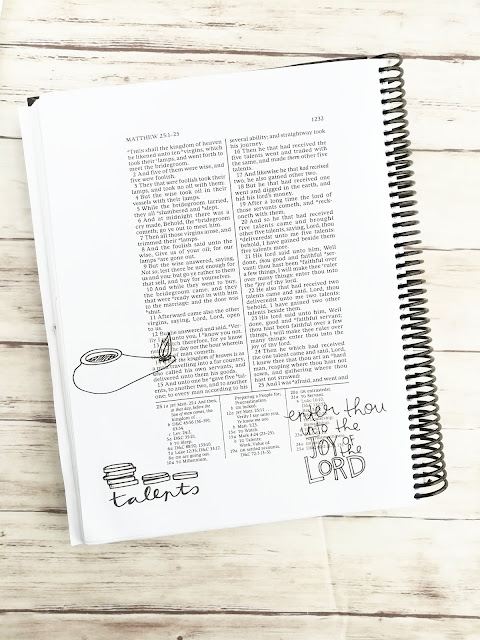 1232
MATTHEW 25:1–25
THEN shall the kingdom of heaven
be likened unto ten virgins, which
took their lamps, and went forth to
meet the bridegroom.
2 And five of them were wise, and
five were foolish.
3 They that were foolish took their
lamps, and took no oil with them:
4 But the wise took oil in their
vessels with their lamps.
5 While the bridegroom tarried,
they all slumbered and slept.
6 And at midnight there was a
cry made, Behold, the bridegroom
cometh; go ye out to meet him.
7 Then all those virgins arose, and
trimmed their lamps.
8 And the foolish said unto the
wise, Give us of your oil; for our
lamps are gone out.
9 But the wise answered, saying,
Not so; lest there be not enough for
us and you: but go ye rather to them
that sell, and buy for yourselves.
10 And while they went to buy,
the bridegroom came; and they
that were ready went in with him
to the marriage: and the door was
shut.
11 Afterward came also the other
virgins, saying, Lord, Lord, open
to us.
12 But he answered and said, Ver-
I say unto you, I know you not.
therefore, for ye know
the day nor the hour wherein
man cometh.
the kingdom of heaven is as
a man travelling into a far country,
called his own servants, and
delivered unto them his goods.
15 And unto one he gave five tal-
ents, to another two, and to another
one; to every man according to his
several ability; and straightway took
his journey.
16 Then he that had received the
five talents went and traded with
the same, and made them other five
talents.
17 And likewise he that had received
two, he also gained other two.
18 But he that had received one
went and digged in the earth, and
hid his lord's money.
19 After a long time the lord of
those servants cometh, and reck-
oneth with them.
20 And so he that had received
five talents came and brought
other five talents, saying, Lord, thou
deliveredst unto me five talents:
behold, I have gained beside them
five talents more.
21 His lord said unto him, Well
done, thou good and faithful ser-
vant: thou hast been faithful over
a few things, I will make thee ruler
over many things: enter thou into
the joy of thy lord.
22 He also that had received two
talents came and said, Lord, thou
deliveredst unto me two talents:
behold, I have gained two other
talents beside them.
23 His lord said unto him, Well
done, good and faithful servant;
thou hast been faithful over a few
things, I will make thee ruler over
many things: enter thou into the
joy of thy lord.
24 Then he which had received
the one talent came and said, Lord,
I knew thee that thou art an hard
man, reaping where thou hast not
sown, and gathering where thou
hast not strawed:
25 And I was afraid, and went and
talents
enter thou
into the
JOY OF
the
LORD